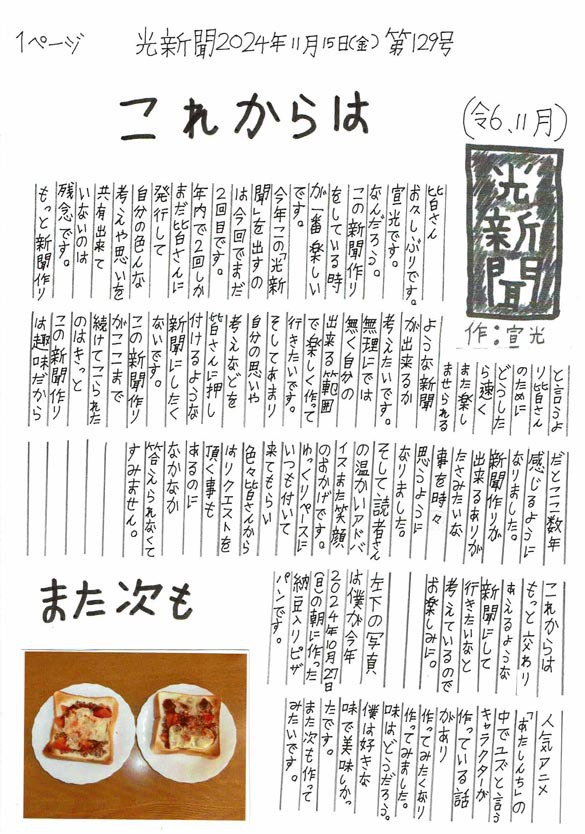 1ページ 光新聞2024年11月15日(金)第129号
これからは
(令6、11月)
光新聞
作:宣光
皆さん
お久しぶりです。
宣光です。
なんだろう。
この新聞作り
をしている時
が一番楽しい
です。
今年この「光新
聞」を出すの
は今回でまだ
2回目です。
年内で2回しか
まだ皆さんに
発行して
自分の色んな
考えや思いを
共有出来て
いないのは
残念です。
もっと新聞作り
と言うよ
り皆さん
のために
どうした
ら速く
また楽し
ませられる
ような新聞
が出来るか
考えたいです。
無理にでは
無く自分の
出来る範囲
で楽しく作って
行きたいです。
そしてあまり
自分の思いや
考えなどを
皆さんに押し
付けるような
新聞にしたく
ないです。
この新聞作り
がここまで
続けてこられた
のはきっと
この新聞作り
は趣味だから
だとここ数年
感じるように
なりました。
新聞作りが
出来るありが
たさみたいな
事を時々
思うように
なりました。
そして読者さん
の温かいアドバ
イスまた笑顔
のおかげです。
ゆっくりペースに
いつも付いて
来てもらい
色々皆さんから
はリクエストを
頂く事も
あるのに
なかなか
答えられなくて
すみません。
これからは
もっと交わり
あえるような
新聞にして
行きたいなと
考えているので
お楽しみに。
左下の写真
は僕が今年
2024年10月27日
(日)の朝に作った
納豆入りピザ
パンです。
人気アニメ
「あたしんち」の
中でユズと言う
キャラクターが
作っている話
があり
作ってみたくなり
作ってみました。
味はどうだろう。
僕は好きな
味で美味しかっ
たです。
また次も作って
みたいです。
また次も